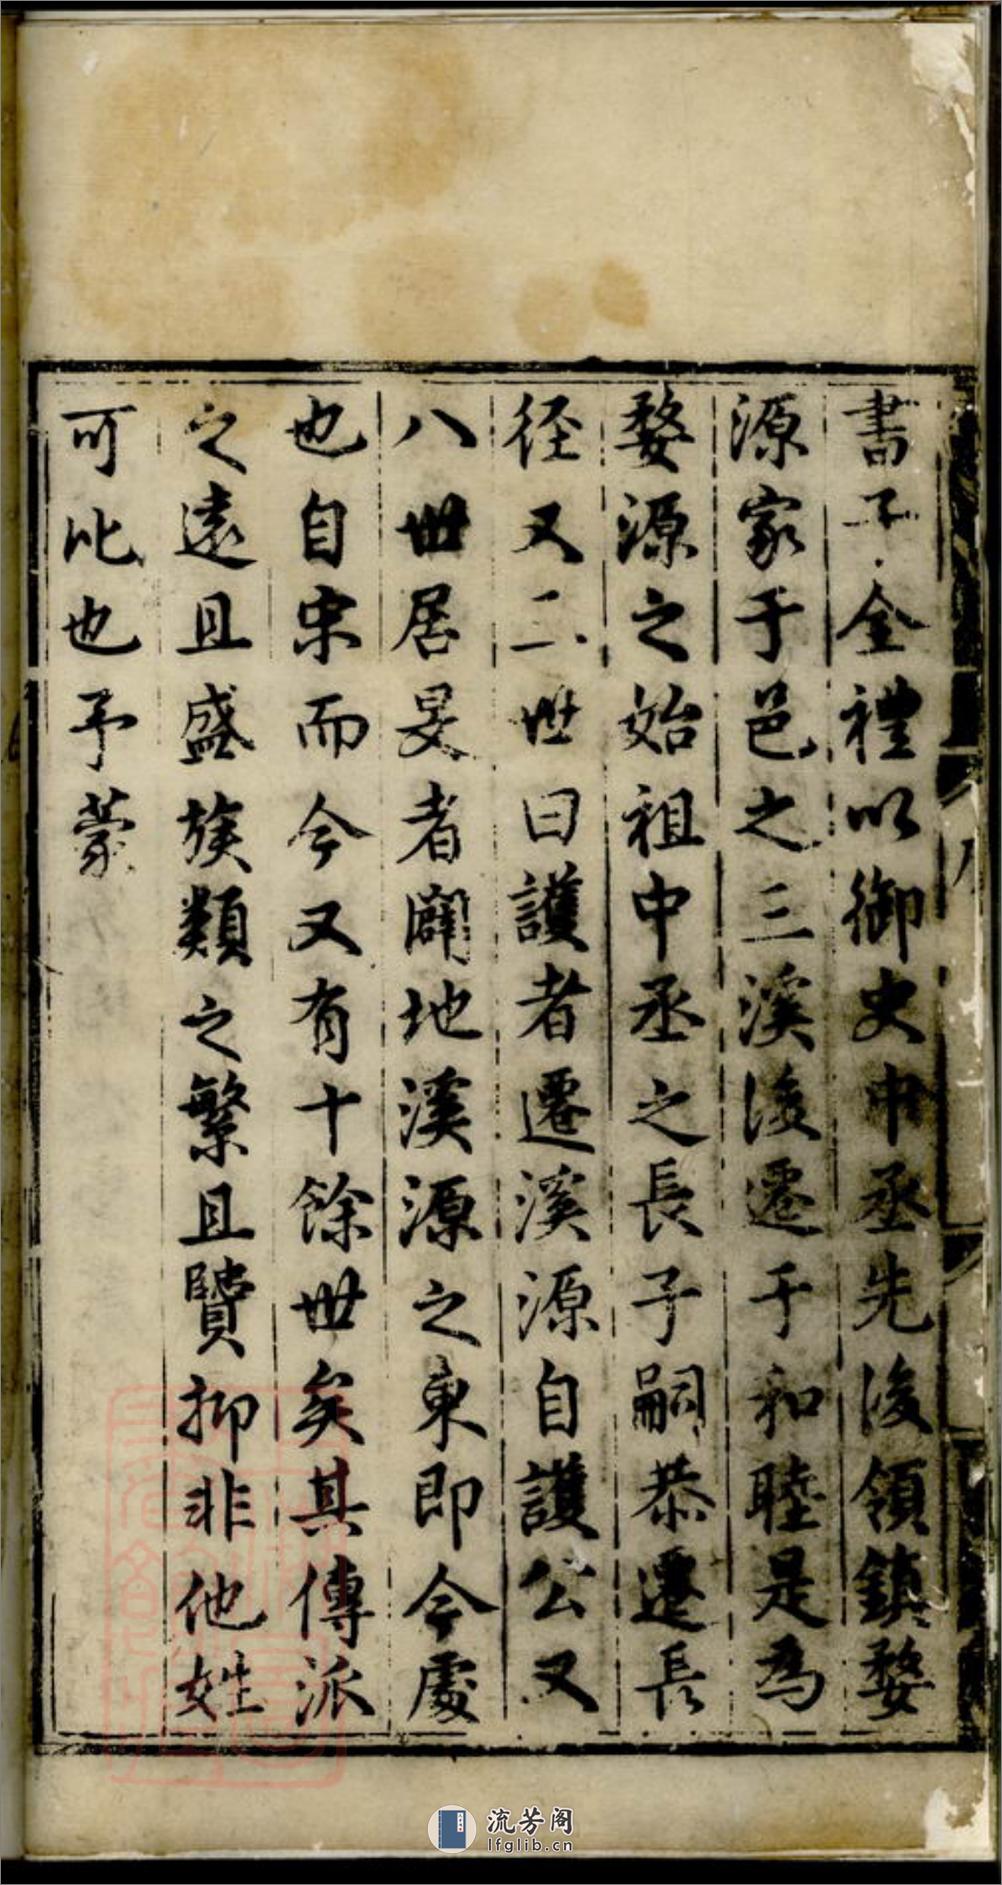 書子全禮以御史中丞先後領鎮婺
源家于邑之三溪後遷于和睦是為
婺源之始祖中丞之長子嗣恭遷長
径又二世曰護者遷溪源自護公又
八世居旻者闢地溪源之東即今處
也自宋而今又有十餘世矣其傳派
之遠且盛族類之繁且賢抑非他姓
可比也予蒙
流芳阁
lfglib.cn